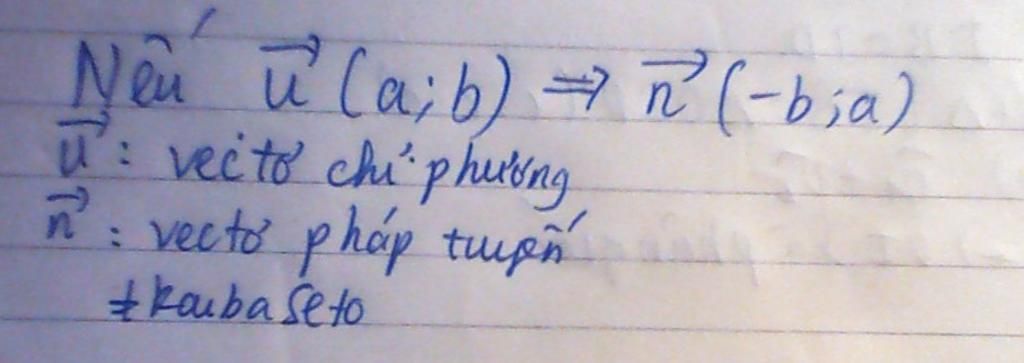 Nếu u⃗ (a;b) ⇒ n⃗ (-b;a)
u⃗ : vectơ chỉ phương
n⃗ : vectơ pháp tuyến